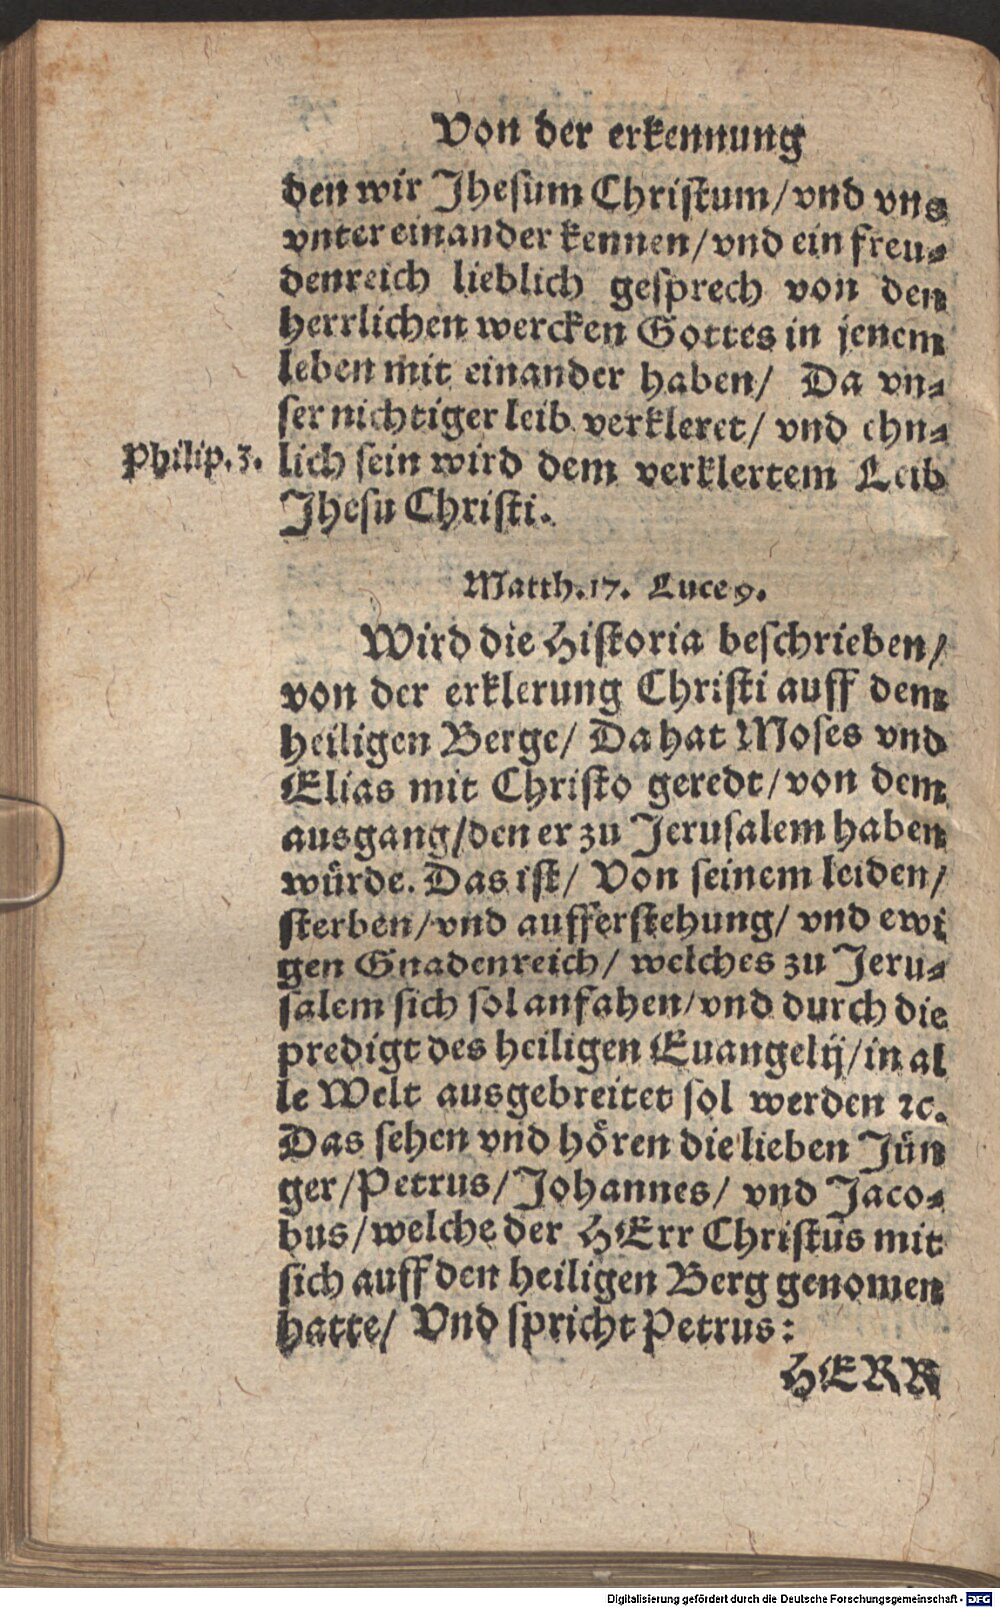 Von der erkennung
den wir Jhesum Christum/ vnd vns
vnter einander kennen/ vnd ein freu-
denreich lieblich gesprech von den
herrlichen wercken Gottes in jenem
leben mit einander haben/ Da vn-
ser nichtiger leib verkleret/ vnd ehn-
Philip. 3. lich sein wird dem verklertem Leib
Jhesu Christi.
Matth. 17. Luce 9.
Wird die Historia beschrieben/
von der erklerung Christi auff dem
heiligen Berge/ Da hat Moses vnd
Elias mit Christo geredt/ von dem
ausgang/ den er zu Jerusalem haben
würde. Das ist/ Von seinem leiden/
sterben/ vnd aufferstehung/ vnd ewi
gen Gnadenreich/ welches zu Jeru-
salem sich sol anfahen/ vnd durch die
predigt des heiligen Euangelij/ in al
le Welt ausgebreitet sol werden ꝛc.
Das sehen vnd hören die lieben Jün
ger/ Petrus/ Johannes/ vnd Jaco-
bus/ welche der HErr Christus mit
sich auff den heiligen Berg genomen
hatte/ Vnd spricht Petrus:
HERR
Digitalisierung gefördert durch die Deutsche Forschungsgemeinschaft - DFG